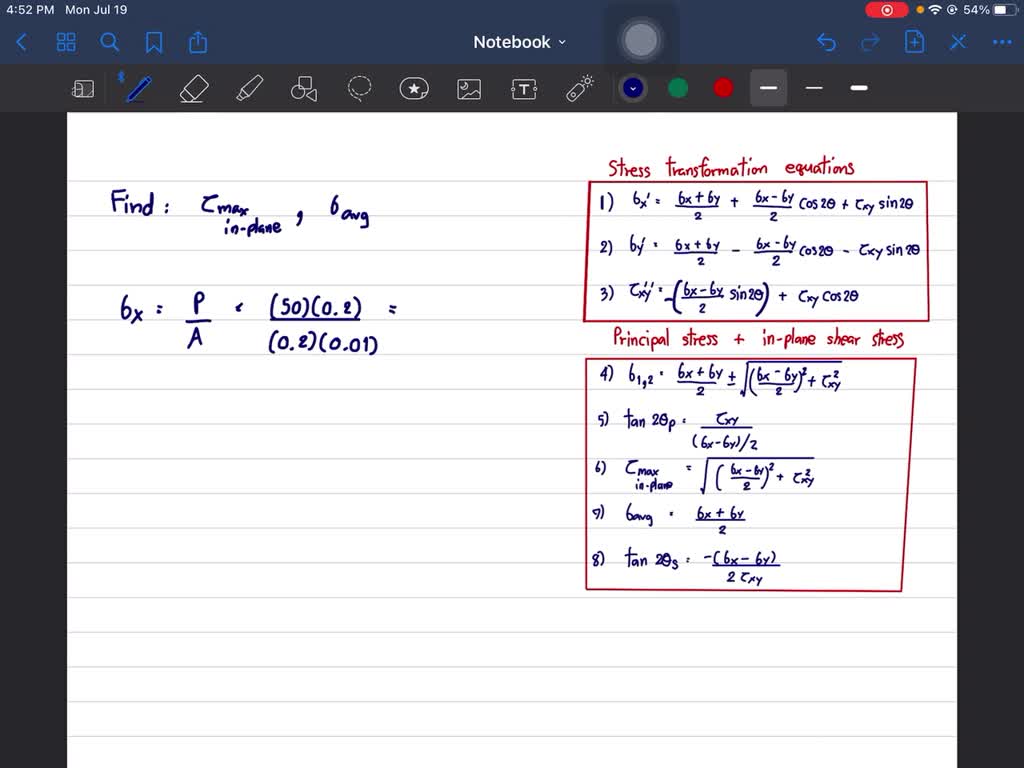 4:52 PM Mon Jul 19
54%
Notebook
Find : τmax in-plane , σavg
σx = P/A = (50)(0.2)/(0.2)(0.01) =
Stress transformation equations
1) σx' = (σx + σy)/2 + (σx - σy)/2 cos 2θ + τxy sin 2θ
2) σy' = (σx + σy)/2 - (σx - σy)/2 cos 2θ - τxy sin 2θ
3) τx'y' = -((σx - σy)/2 · sin 2θ) + τxy cos 2θ
Principal stress + in-plane shear stress
4) σ1,2 = (σx + σy)/2 ± √(((σx - σy)/2)² + τxy²)
5) tan 2θp = τxy/(σx - σy)/2
6) τmax in-plane = √(((σx - σy)/2)² + τxy²)
7) σavg = (σx + σy)/2
8) tan 2θs = -(σx - σy)/2τxy